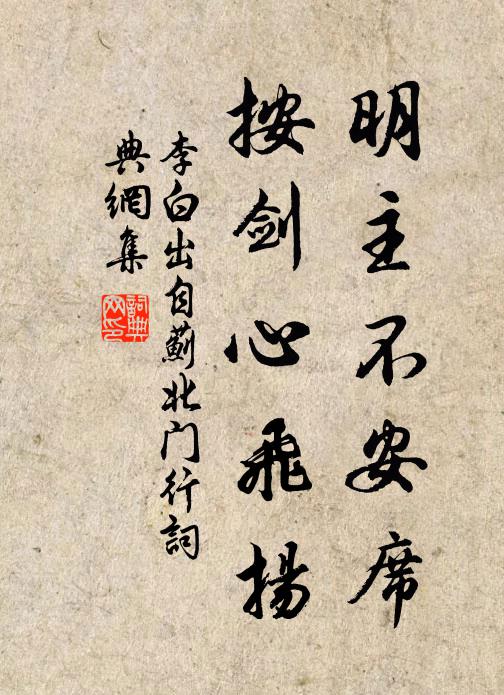 明主不安席
按剑心飛揚
李白出自薊北门行詞
典網集
詞典网印